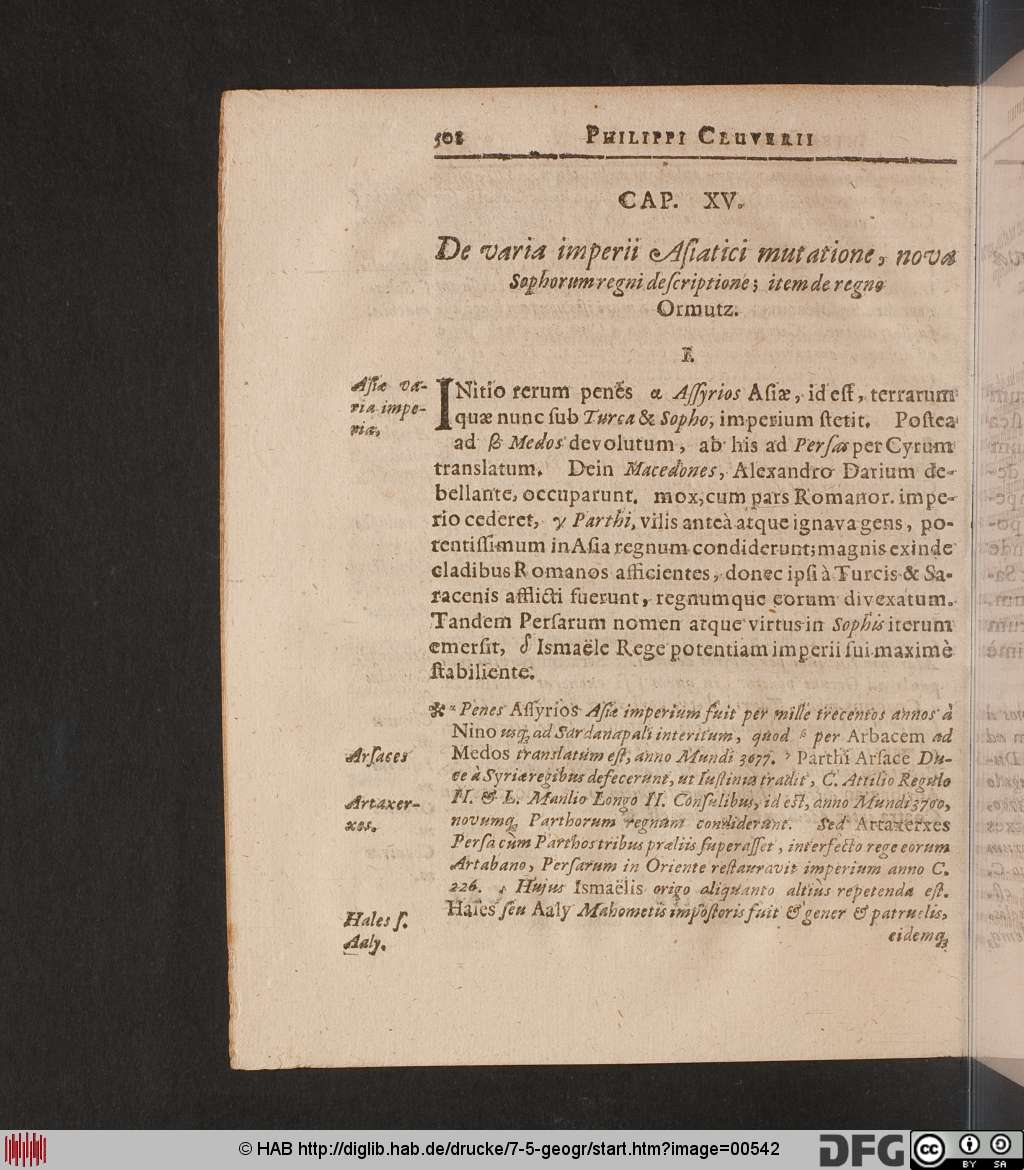 508 PHILIPPI CLUVERII
CAP. XV.
De varia imperii Aſiatici mutatione, nova
Sophorum regni deſcriptione; item de regno
Ormutz.
I.
Aſiæ va-
ria impe-
ria.
INitio rerum penes α Aſſyrios Aſiæ, id eſt, terrarum
quæ nunc ſub Turca & Sopho, imperium ſtetit. Poſtea
ad β Medos devolutum, ab his ad Perſas per Cyrum
translatum. Dein Macedones, Alexandro Darium de-
bellante, occuparunt. mox, cum pars Romanor. impe-
rio cederet, γ Parthi, vilis anteà atque ignava gens, po-
tentiſſimum in Aſia regnum condiderunt; magnis exinde
cladibus Romanos afficientes, donec ipſi à Turcis & Sa-
racenis afflicti fuerunt, regnumque eorum divexatum.
Tandem Perſarum nomen atque virtus in Sophis iterum
emerſit, δ Ismaële Rege potentiam imperii ſui maximè
ſtabiliente.
* α Penes Aſſyrios Aſiæ imperium fuit per mille trecentos annos à
Nino usq; ad Sardanapali interitum, quod β per Arbacem ad
Arſaces
Medos translatum eſt, anno Mundi 3077. γ Parthi Arſace Du-
ce à Syriæ regibus defecerunt, ut Iuſtinus tradit, C. Attilio Regulo
Artaxer-
xes.
II. & L. Manlio Longo II. Conſulibus, id eſt, anno Mundi 3700,
novumq; Parthorum regnum condiderunt. Sed Artaxerxes
Perſa cùm Parthos tribus præliis ſuperaſſet, interfecto rege eorum
Artabano, Perſarum in Oriente reſtauravit imperium anno C.
226. δ Hujus Ismaëlis origo aliquanto altiùs repetenda eſt.
Hales ſ.
Aaly.
Hales ſeu Aaly Mahometis impoſtoris fuit & gener & patruelis,
eidemq;
© HAB http://diglib.hab.de/drucke/7-5-geogr/start.htm?image=00542
DFG
cc BY SA